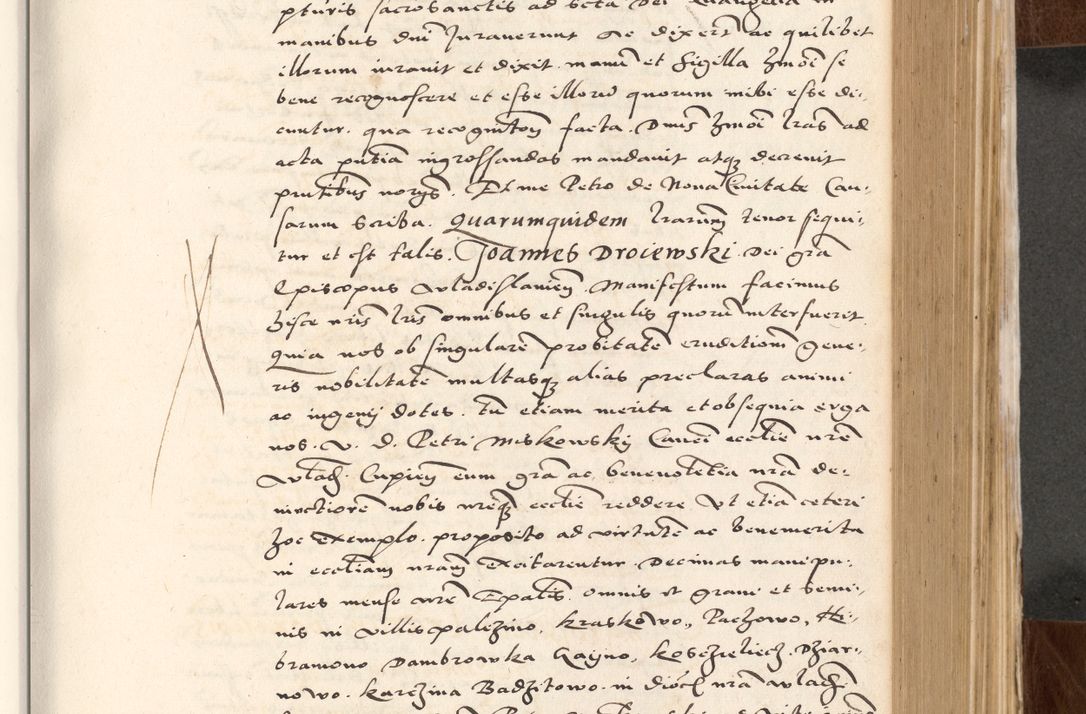 pturis sacrosanctis ad scta Dei Euangelia in
manibus dni Jurauerunt Ac dixert ac quilibet
illorum iurauit et dixit. manu et Sigilla hmoi se
bene recognoscere et esse illoru quorum mibi esse di-
cuntur. qua recognitoe facta. Dnus hmoi lras ad
acta putia ingrossandas mandauit atq decreuit
pntibus norys. Et me Petro de Noua Ciuitate Cau-
sarum Scriba. Quarumquidem lrarum tenor sequi-
tur et est talis. Joannes Drociewski. Dei gra
Episcopus Wladislauien. Manifestum facimus
hisce nris lris omnibus et singulis quoru interfuerit.
quia nos ob singulare probitate eruditiom gene-
ris nobilitate multasq alias preclaras animi
ac ingenij dotes. tu etiam merita et obsequia erga
nos. V. D. Petri Miskowskij Canci ecclie nre
Wladi. Cupien eum gra ac beneuoletia nra de-
uinctiore nobis nreq ecclie reddere Vt etia ceteri
hoc Exemplo. proposito ad virtute ac benemerita
in eccliam nram Excitarentur. Decimas manipu-
lares mense nre Epalis. omnis et grani et semi-
nis in villis palczino, kraskowo, Paczowo,
bramowo Dambrowka Gayno, kosczieliecz. Dziar-
nowo. karczina Badzitowo. in dioc nra wladi